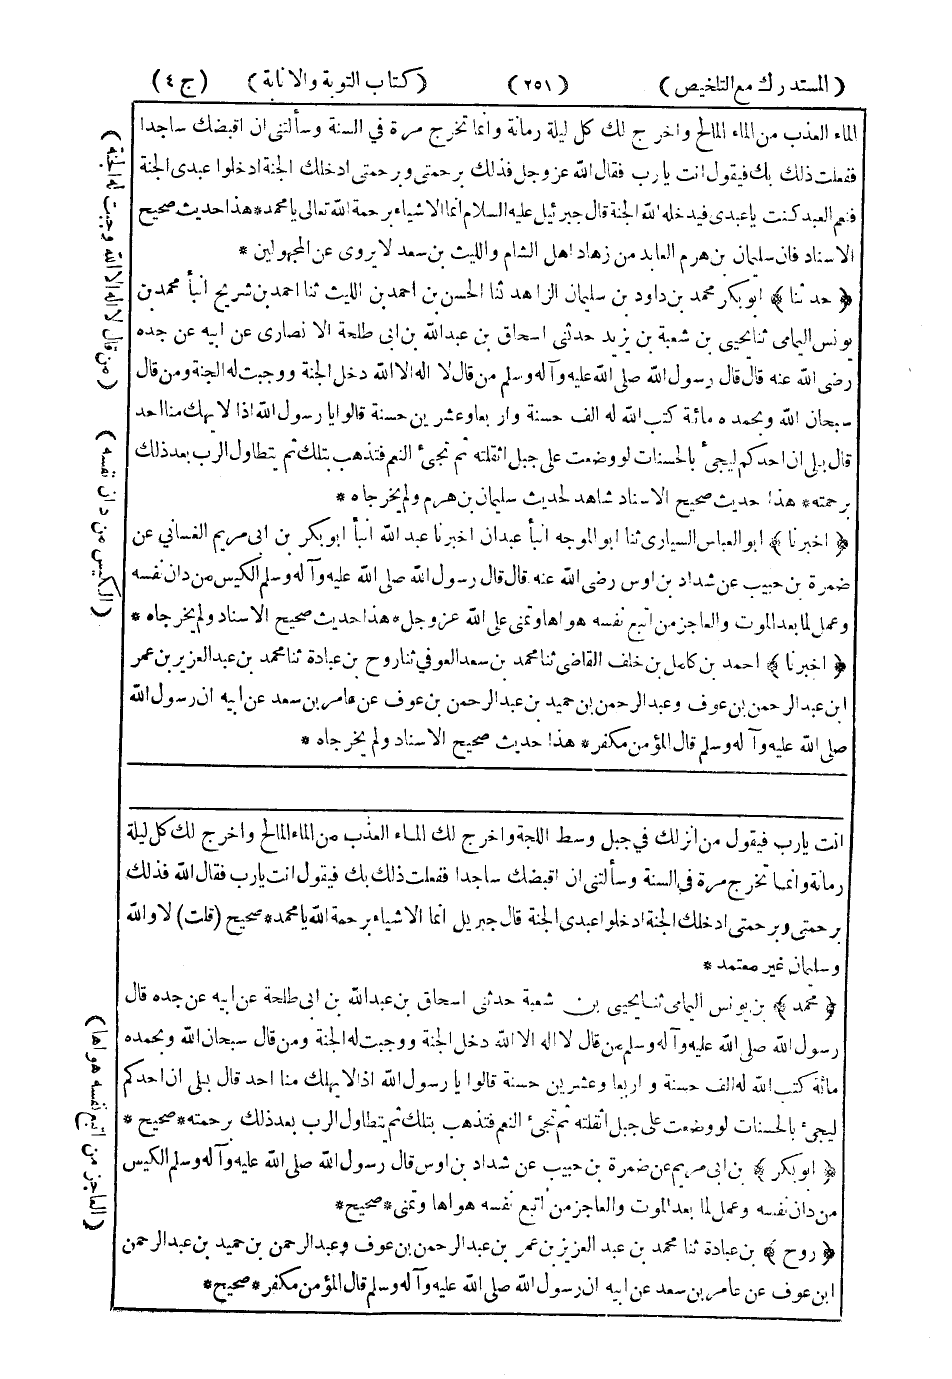 (المستدرك مع التلخيص) (٢٥١) (كتاب التوبة والانابة) (ج ٤)
الماء العذب من الماء المالح واخرج لك كل ليلة رمانة وانما تخرج مرة في السنة وسألتنى ان اقبضك ساجدا
ففعلت ذلك بك فيقول انت يا رب فقال الله عز وجل فذلك برحمتى وبرحمتى ادخلك الجنة ادخلوا عبدى الجنة
فنعم العبد كنت يا عبدى فيدخله الله الجنة قال جبرئيل عليه السلام انما الاشياء برحمة الله تعالى يا محمد * هذا حديث صحيح
الاسناد فان سليمان بن هرم العابد من زهاد اهل الشام والليث بن سعد لا يروى عن المجهولين *
﴿ حدثنا ﴾ ابو بكر محمد بن داود بن سليمان الزاهد ثنا الحسن بن احمد بن الليث ثنا احمد بن شريح انبأ محمد بن
يونس اليمامى ثنا يحيى بن شعبة بن يزيد حدثنى اسحاق بن عبد الله بن ابى طلحة الانصارى عن ابيه عن جده
رضى الله عنه قال قال رسول الله صلى الله عليه وآله وسلم من قال لا اله الا الله دخل الجنة ووجبت له الجنة ومن قال
سبحان الله وبحمده مائة كتب الله له الف حسنة واربعا وعشرين حسنة قالوا يا رسول الله اذا لا يهلك منا احد
قال بلى ان احدكم ليجىء بالحسنات لو وضعت على جبل اثقلته ثم تجىء النعم فتذهب بتلك ثم يتطاول الرب بعد ذلك
برحمته * هذا حديث صحيح الاسناد شاهد لحديث سليمان بن هرم ولم يخرجاه *
﴿ اخبرنا ﴾ ابو العباس السيارى ثنا ابو الموجه انبأ عبدان اخبرنا عبد الله انبأ ابو بكر بن ابى مريم الغسانى عن
ضمرة بن حبيب عن شداد بن اوس رضى الله عنه قال قال رسول الله صلى الله عليه وآله وسلم الكيس من دان نفسه
وعمل لما بعد الموت والعاجز من اتبع نفسه هواها وتمنى على الله عز وجل * هذا حديث صحيح الاسناد ولم يخرجاه *
﴿ اخبرنا ﴾ احمد بن كامل بن خلف القاضى ثنا محمد بن سعد العوفى ثنا روح بن عبادة ثنا محمد بن عبد العزيز بن عمر
ابن عبد الرحمن بن عوف وعبد الرحمن بن حميد بن عبد الرحمن بن عوف عن عامر بن سعد عن ابيه ان رسول الله
صلى الله عليه وآله وسلم قال المؤمن مكفر * هذا حديث صحيح الاسناد ولم يخرجاه *
(من قال لا اله الا الله وجبت له الجنة)
(الكيس من دان نفسه)
انت يا رب فيقول من انزلك في جبل وسط اللجة واخرج لك الماء العذب من الماء المالح واخرج لك كل ليلة
رمانة وانما تخرج مرة في السنة وسألتنى ان اقبضك ساجدا ففعلت ذلك بك فيقول انت يا رب فقال الله فذلك
برحمتى وبرحمتى ادخلك الجنة ادخلوا عبدى الجنة قال جبريل انما الاشياء برحمة الله يا محمد * صحيح (قلت) لا والله
وسليمان غير معتمد *
﴿ محمد ﴾ بن يونس اليمامى ثنا يحيى بن شعبة حدثنى اسحاق بن عبد الله بن ابى طلحة عن ابيه عن جده قال
رسول الله صلى الله عليه وآله وسلم من قال لا اله الا الله دخل الجنة ووجبت له الجنة ومن قال سبحان الله وبحمده
مائة كتب الله له الف حسنة واربعا وعشرين حسنة قالوا يا رسول الله اذا لا يهلك منا احد قال بلى ان احدكم
ليجىء بالحسنات لو وضعت على جبل اثقلته ثم تجىء النعم فتذهب بتلك ثم يتطاول الرب بعد ذلك برحمته * صحيح *
﴿ ابو بكر ﴾ بن ابى مريم عن ضمرة بن حبيب عن شداد بن اوس قال رسول الله صلى الله عليه وآله وسلم الكيس
من دان نفسه وعمل لما بعد الموت والعاجز من اتبع نفسه هواها وتمنى * صحيح *
﴿ روح ﴾ بن عبادة ثنا محمد بن عبد العزيز بن عمر بن عبد الرحمن بن عوف وعبد الرحمن بن حميد بن عبد الرحمن
ابن عوف عن عامر بن سعد عن ابيه ان رسول الله صلى الله عليه وآله وسلم قال المؤمن مكفر * صحيح *
(العاجز من اتبع نفسه هواها)